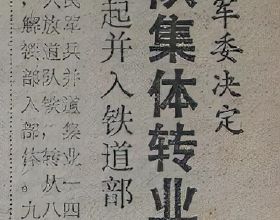 军委决定
队集体转业
起并入铁道部
民军兵并道集业一四
人放道队铁,转从八
,解铁部入部体。九